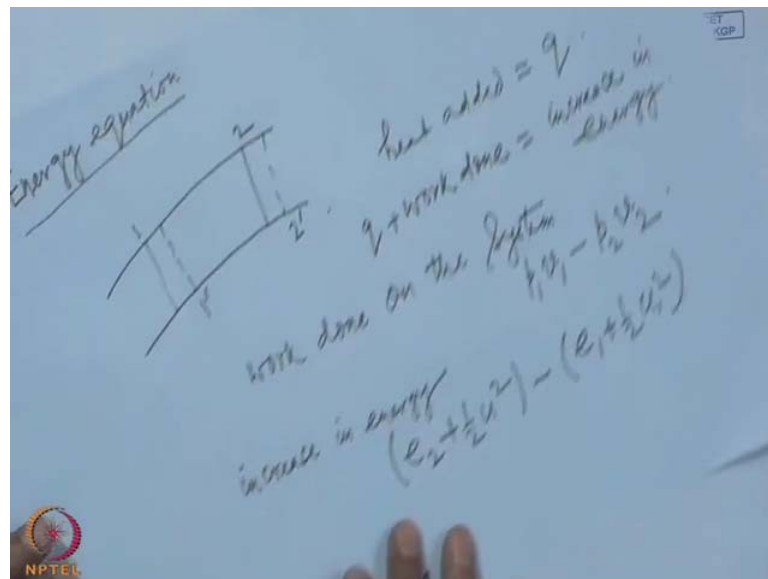 Energy equation
1
2
1'
2'
heat added = q.
q + work done = increase in
energy.
work done on the system
p₁v₁ - p₂v₂.
increase in energy
(e₂ + ½u₂²) - (e₁ + ½u₁²)
CET
KGP
NPTEL